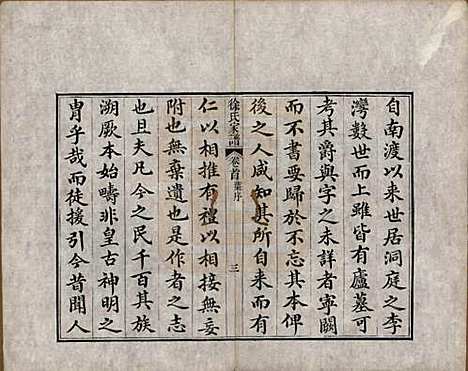 自南渡以来世居洞庭之李
灣數世而上雖皆有廬墓可
考其爵與字之未詳者寧闕
而不書要歸於不忘其本俾
後之人咸知其所自来而有
徐氏家譜 卷首葉序 三
仁以相推有禮以相接無妄
附也無棄遺也是作者之志
也且夫凡今之民千百其族
溯厥本始疇非皇古神明之
胄乎哉而徒援引今昔聞人